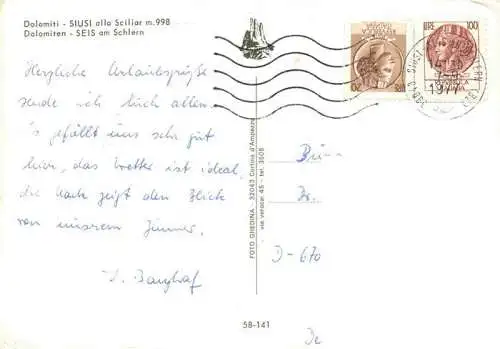 Dolomiti - SIUSI allo Sciliar m. 998
Dolomiten - SEIS am Schlern
Herzliche Urlaubsgrüße
sende ich Euch allen.
's gefällt uns sehr gut
hier, das Wetter ist ideal,
die Karte zeigt den Blick
von unserem Zimmer.
FOTO GHEDINA - 32043 Cortina d'Ampezzo
via verocai 45 - tel. 3608
LIRE 100
SIUSI
1977
D-670
De
58-141